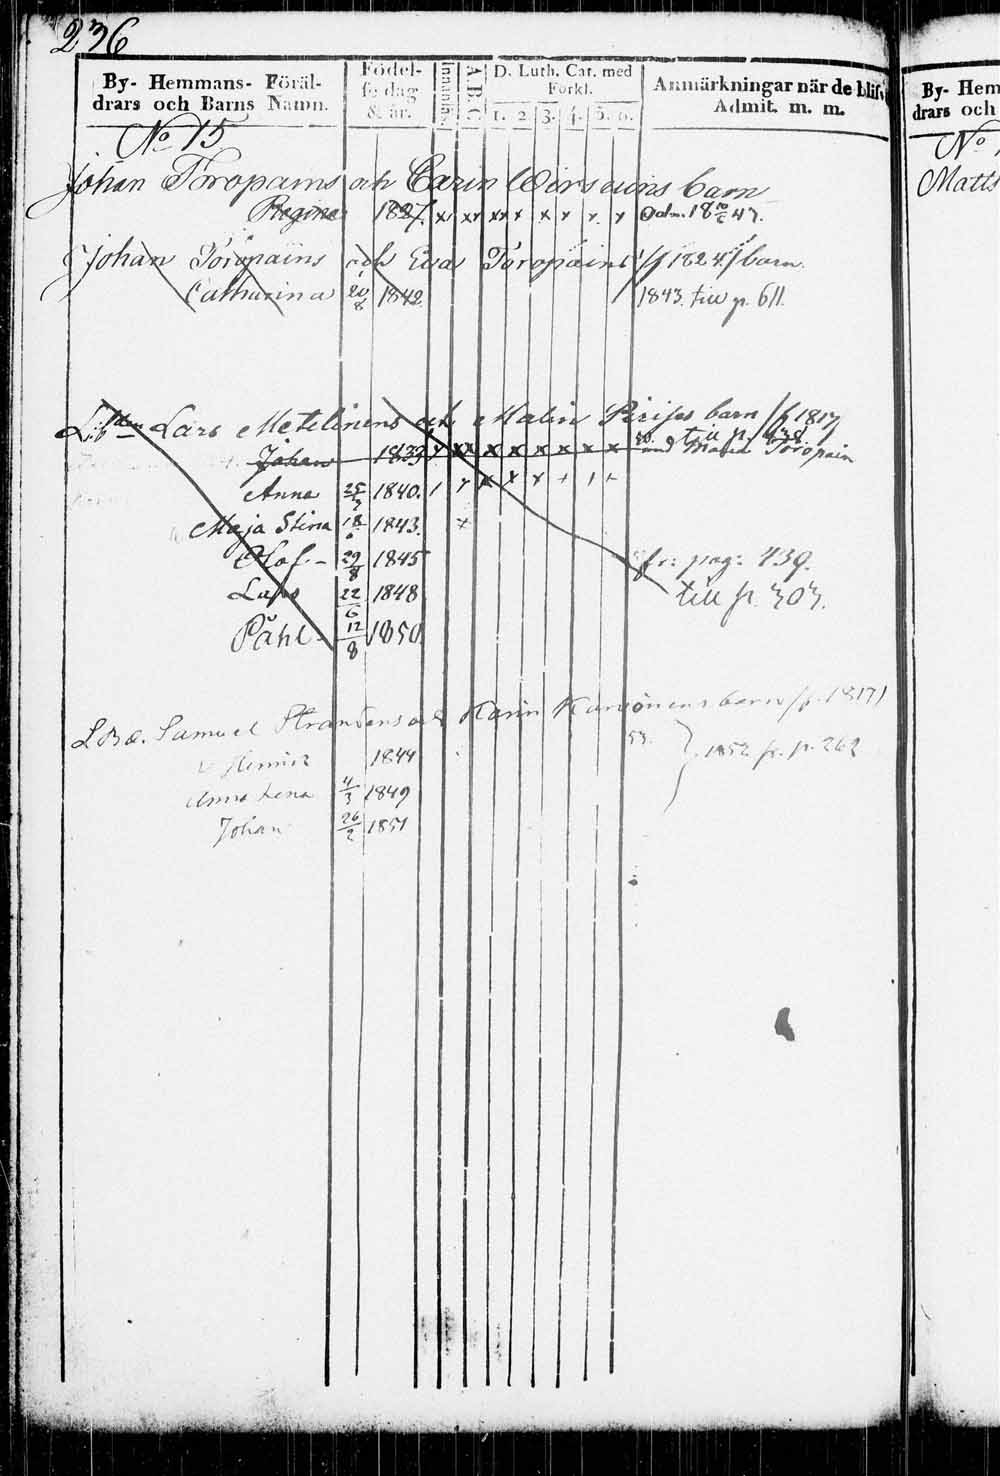 236
By- Hemmans- Föräl-
drars och Barns Namn.
Födel-
se dag
& år.
Innanläs.
A.B.C.
D. Luth. Cat. med
Förkl.
1. 2 3. 4. 5. 6.
Anmärkningar när de blifv
Admit. m. m.
No 15
Johan Toropains och Carin Wirsuins barn
Regina 1827. x xx xx x x x x x Adm. 18 10/6 47.
Johan Toropains och Ewa Toropains /f 1824./ barn.
Catharina 20/8 1842. 1843. till p. 611.
Lars Metelinens och Malin Pirises barn /f 1817
till p.
Johan 1833 x xx x x x x x x Maria Toropain
Anna 25/7 1840. / x x x x + / +
Maja Stina 18/6 1843. x
Olof - 29/8 1845 fr: pag: 439.
Lars 22/6 1848 till p. 303.
Påhl - 12/8 1850
Samuel Strandens och Karin barn /f. 1817/
53.
1844 1852 fr. p. 262
Anna Lena 4/3 1849
Johan 26/2 1851
By- Hem
drars och
No 1
Matts